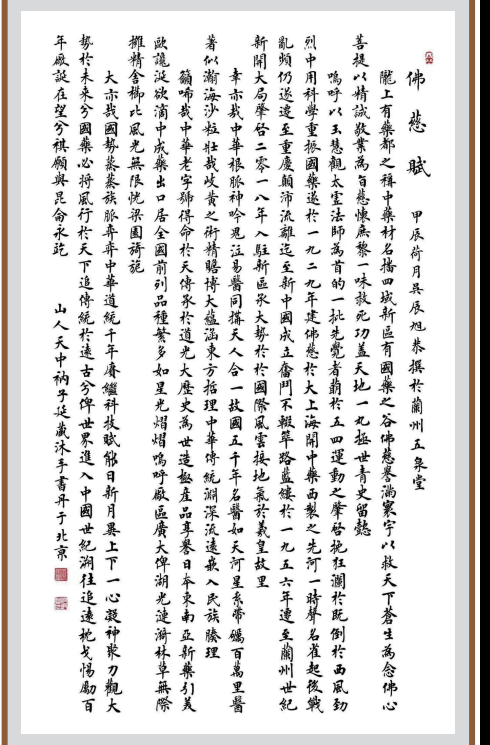 佛慈賦 甲辰荷月吳辰旭恭撰於蘭州五泉堂
隴上有藥都之稱中藥材名播四域新區有國藥之谷佛慈譽滿寰宇以救天下蒼生為念佛心
菩提以精誠敬業為旨慈懷庶黎一味救死功蓋天地一丸拯世青史留懿
嗚呼以玉慧觀太虛法師為首的一批先覺者萌於五四運動之肇啓挽狂瀾於既倒於西風勁
烈中用科學重振國藥遂於一九二九年建佛慈於大上海開中藥西製之先河一時聲名雀起後戰
亂頻仍遂遷至重慶顛沛流離迄至新中國成立奮鬥不輟篳路藍縷於一九五六年遷至蘭州世紀
新開大局肇啓二零一八年入駐新區承大勢於於國際風雲接地氣於羲皇故里
幸亦哉中華根脈神吟鬼泣易醫同構天人合一故國五千年名醫如天河星系帶礪百萬里醫
著似瀚海沙粒壯哉岐黃之術精贍博大蘊涵東方哲理中華傳統淵深流遠嵌入民族腠理
籲嘻哉中華老字號得命於天傳承於道光大歷史為世造極產品享譽日本東南亞新藥引美
歐讒涎欲滴中成藥出口居全國前列品種繁多如星光熠熠嗚呼廠區廣大俾湖光漣漪林草無際
攤精舍櫛比風光無限恍梁園旖旎
大亦哉國勢蒸蒸族脈弈弈中華道統千年賡繼科技賦能日新月異上下一心凝神聚力觀大
勢於未來兮國藥必將風行於天下追傳統於遠古兮俾世界進入中國世紀溯往追遠枕戈惕勵百
年廠誕在望兮祺願與昆侖永訖
山人天中衲子延藏沐手書丹于北京